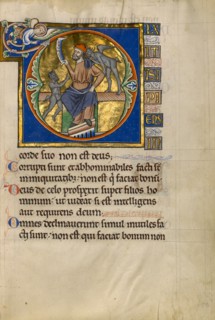 corde suo non est deus;
Corrupti sunt et abhominabiles facti st
in iniquitatibȝ · non est q̇ faciat bonū
Deus de celo prospexit super filios ho
minum · ut uideat si est intelligens
aut requirens deum
Omnes declinauerunt simul inutiles fa
cti sunt · non est qui faciat bonum non